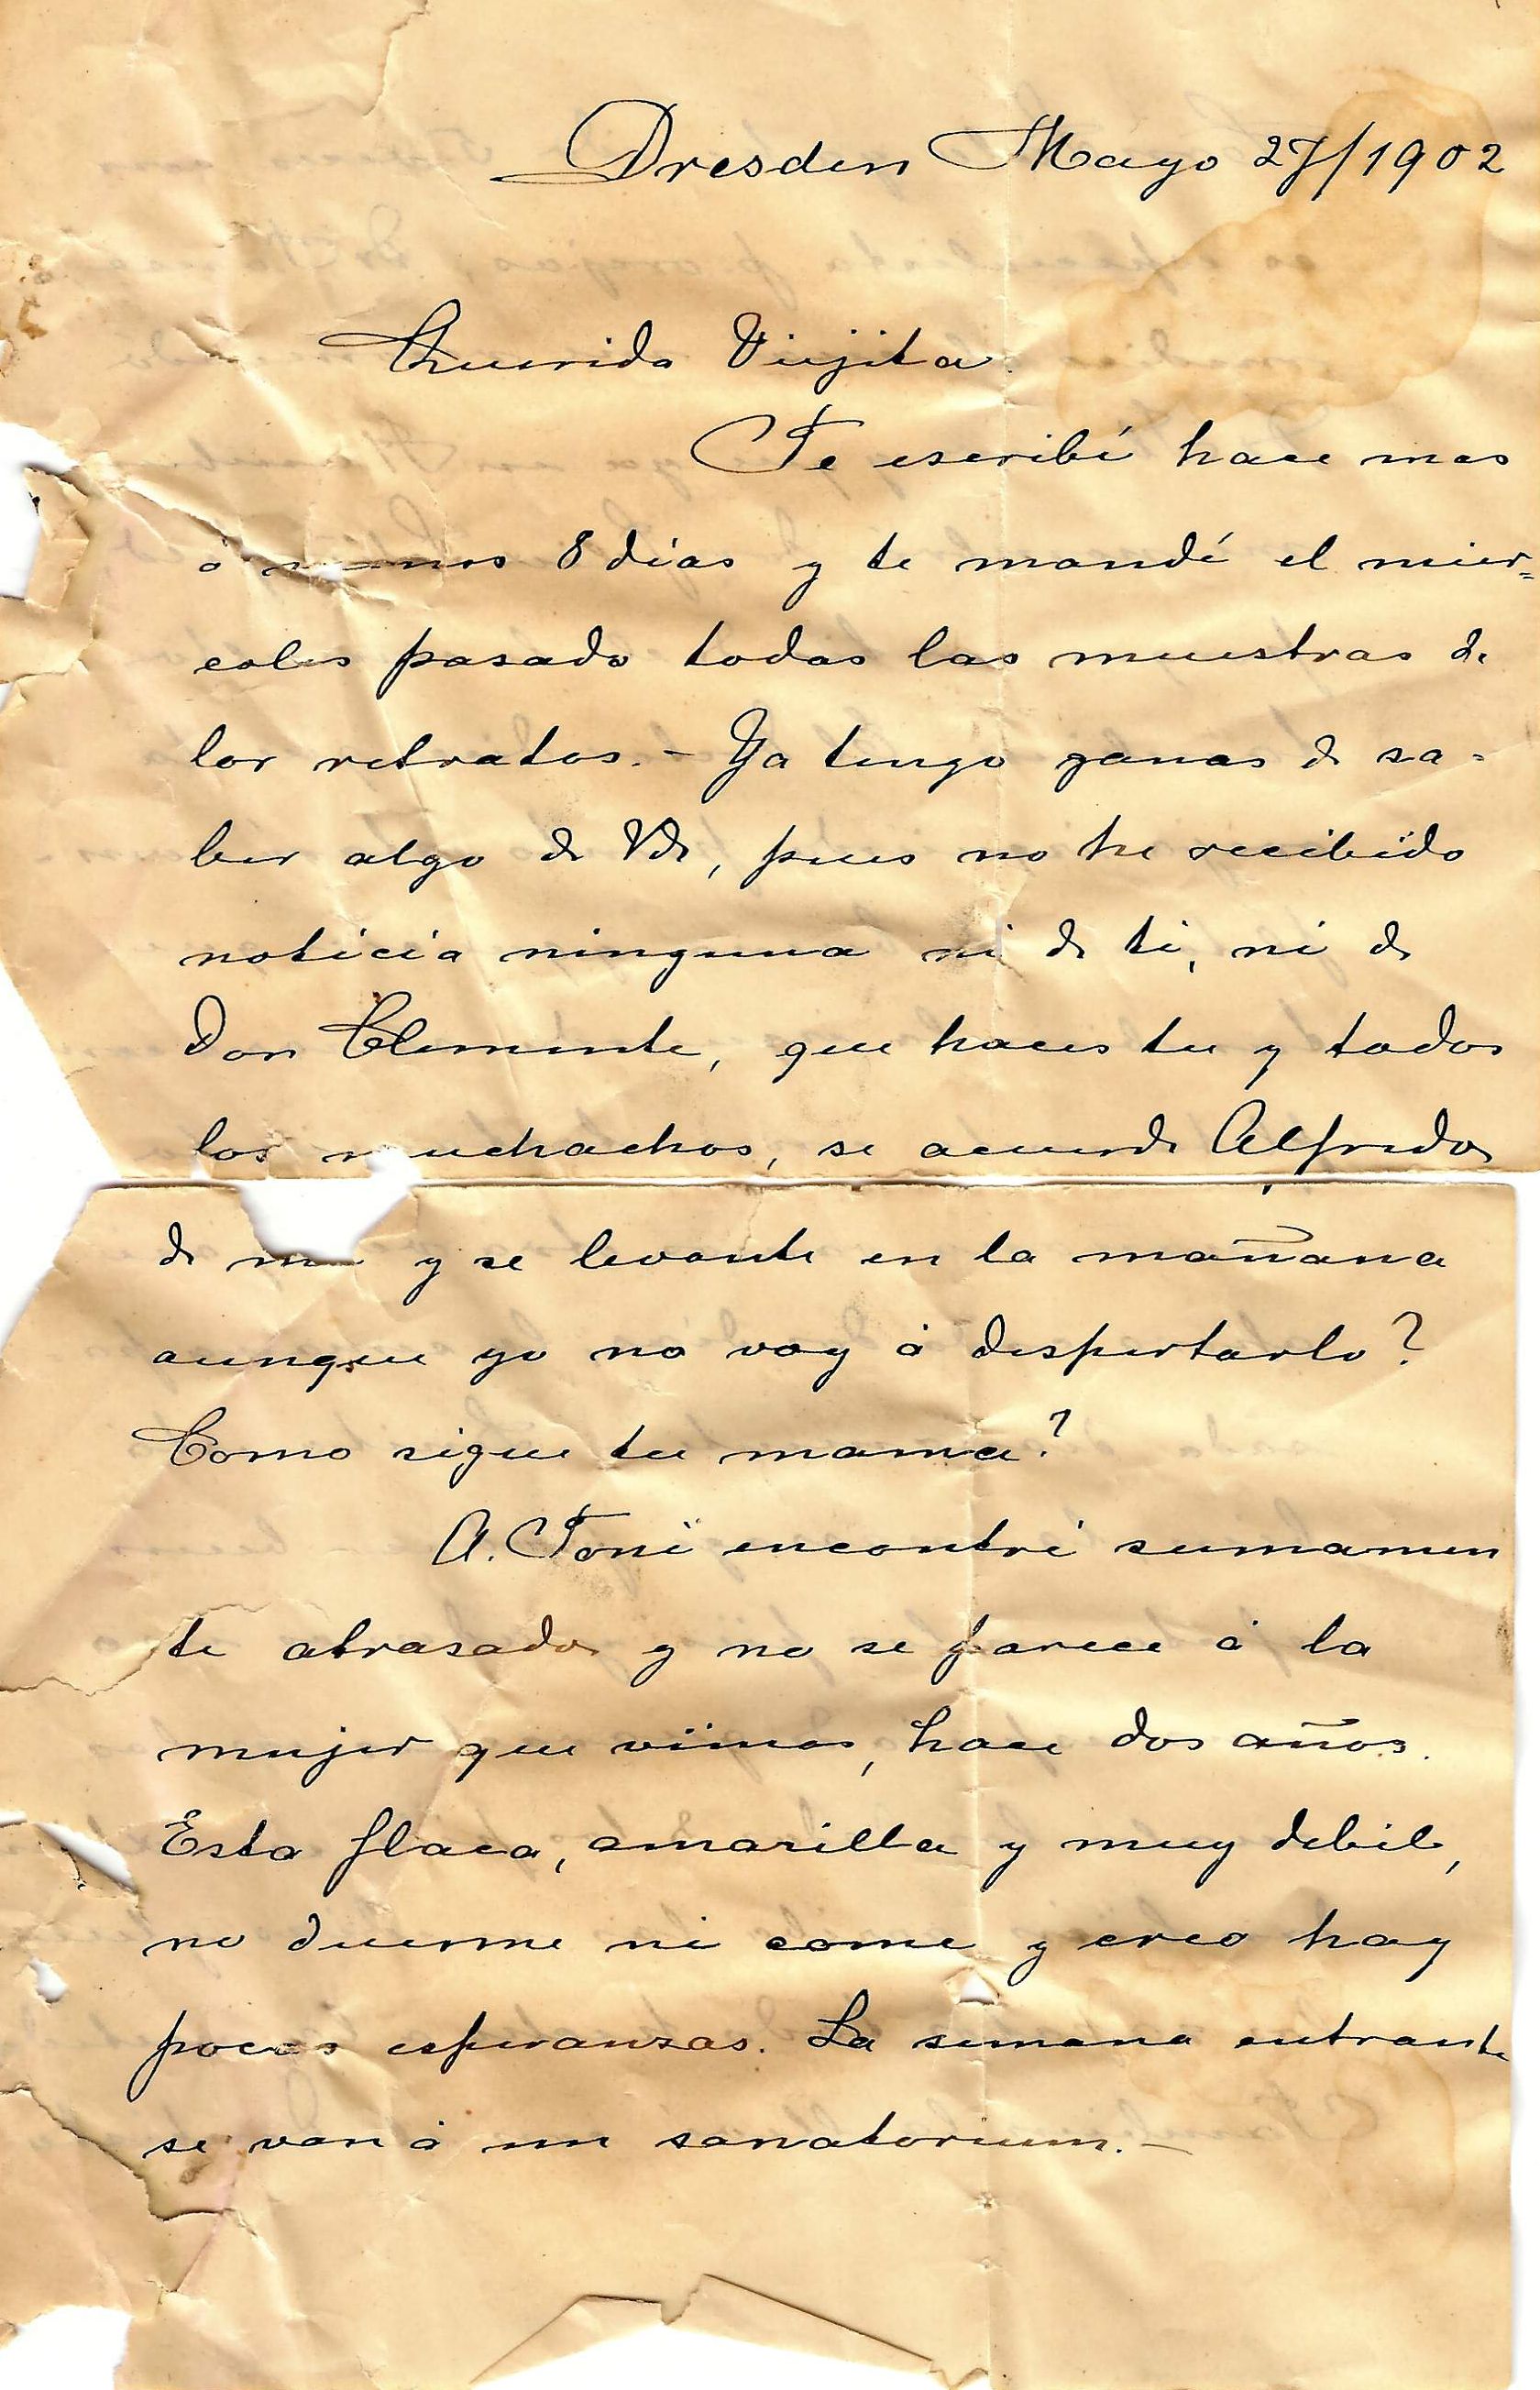 Dresden Mayo 27/1902
Querida Viejita.
Te escribí hace mas
ó menos 8 dias y te mandé el mier=
coles pasado todas las muestras de
los retratos. - Ya tengo ganas de sa=
ber algo de Vds, pues no he recibido
noticia ninguna ni de ti, ni de
Don Clemente, que haces tu y todos
los muchachos, se acuerda Alfredo
de mi y se levante en la mañana
aunque yo no voy á despertarlo?
Como sigue tu mama?
A. Toni encontré sumamen
te atrasada y no se parece á la
mujer que viimos, hace dos años.
Esta flaca, amarilla y muy debil,
no duerme ni come y creo hay
pocas esperanzas. La semana entrante
se van á un sanatorium. -